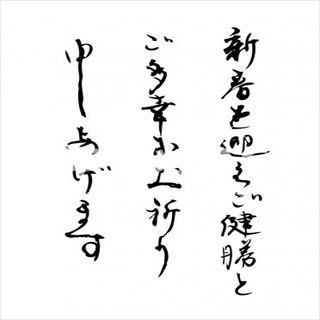 新春を迎えご健勝と
ご多幸をお祈り
申しあげます